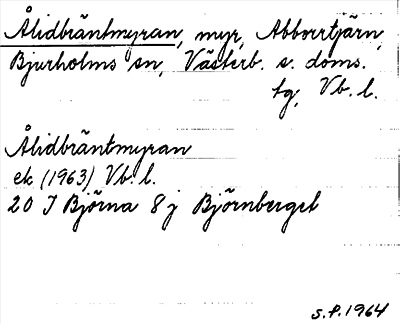 Ålidbräntmyran, myr, Abborrtjärn,
Bjurholms sn, Västerb. s. doms.
tg, Vb. l.
Ålidbräntmyran
ek (1963) Vb. l.
20 I Björna 8 j Björnberget
S.P. 1964